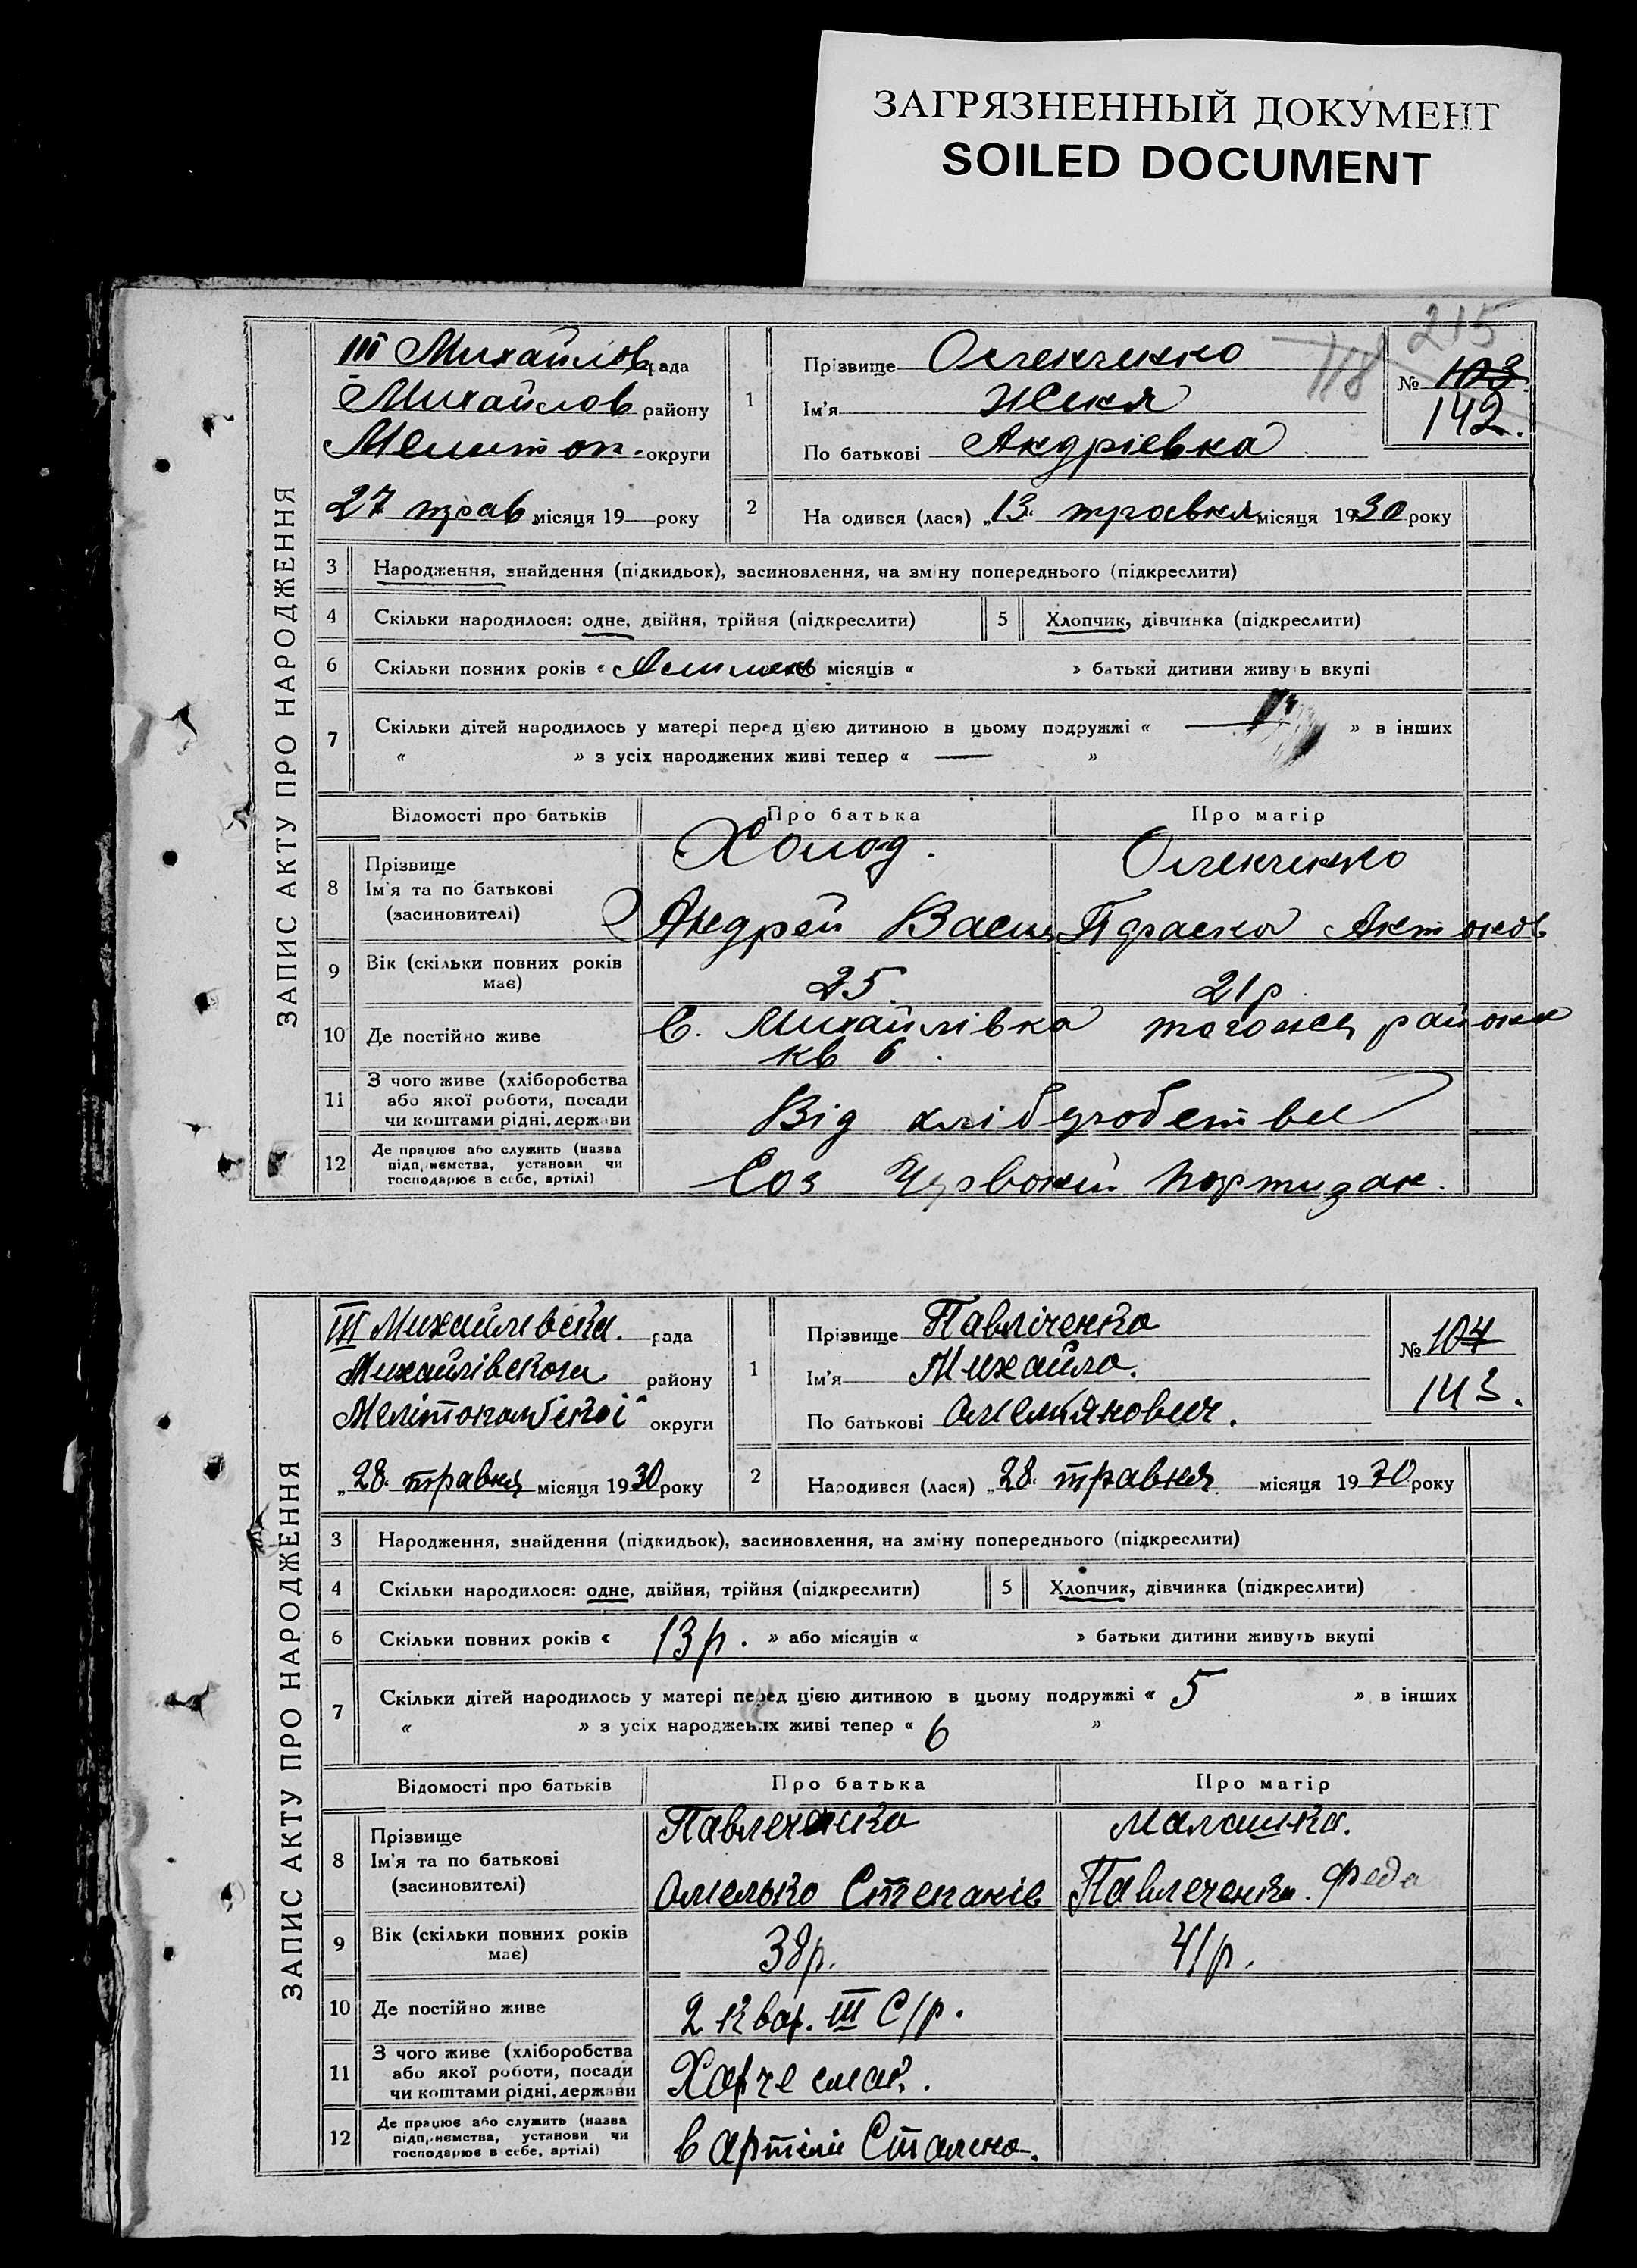 ЗАГРЯЗНЕННЫЙ ДОКУМЕНТ
SOILED DOCUMENT
215
118
ЗАПИС АКТУ ПРО НАРОДЖЕННЯ
III Михайлов рада
Михайлов району
Мелитоп. округи
27 трав місяця 19 року
1
Прізвище
Ім'я Женя
По батькові Андріевна
№ 103
142.
2
На одився (лася) „13. травня місяця 1930 року
3 Народження, знайдення (підкидьок), засиновлення, на зміну попереднього (підкреслити)
4 Скільки народилося: одне, двійня, трійня (підкреслити)
5 Хлопчик, дівчинка (підкреслити)
6 Скільки повних років « місяців « » батьки дитини живуть вкупі
7 Скільки дітей народилось у матері перед цією дитиною в цьому подружжі « — » в інших
« » з усіх народжених живі тепер « — »
Відомості про батьків
Про батька
Про матір
8 Прізвище
Ім'я та по батькові
(засиновителі)
Холод.
Андрей Васил
Антонов
9 Вік (скільки повних років
має)
25.
21р
10 Де постійно живе
С. Михайлівка тогожа району
кв 6.
11 З чого живе (хліборобства
або якої роботи, посади
чи коштами рідні, держави
Від хліборобства
12 Де працює або служить (назва
підприємства, установи чи
господарює в себе, артілі)
Соз Червоний Партизан.
ЗАПИС АКТУ ПРО НАРОДЖЕННЯ
III Михайлівска. рада
Михайлівского району
округи
„28. травня місяця 1930 року
1
Прізвище Павліченко
Ім'я Михайло.
По батькові Омелянович.
№ 104
143.
2
Народився (лася) „28. травня. місяця 1930 року
3 Народження, знайдення (підкидьок), засиновлення, на зміну попереднього (підкреслити)
4 Скільки народилося: одне, двійня, трійня (підкреслити)
5 Хлопчик, дівчинка (підкреслити)
6 Скільки повних років « 13 р. » або місяців « » батьки дитини живуть вкупі
7 Скільки дітей народилось у матері перед цією дитиною в цьому подружжі « 5 » в інших
« » з усіх народжених живі тепер « 6 »
Відомості про батьків
Про батька
Про матір
8 Прізвище
Ім'я та по батькові
(засиновителі)
Павлеченко
Омелько Степанів
Малашка.
Павлеченко. Федо
9 Вік (скільки повних років
має)
38р.
41р.
10 Де постійно живе
2 квар. III С/р.
11 З чого живе (хліборобства
або якої роботи, посади
чи коштами рідні, держави
12 Де працює або служить (назва
підприємства, установи чи
господарює в себе, артілі)
в артілі Сталена.